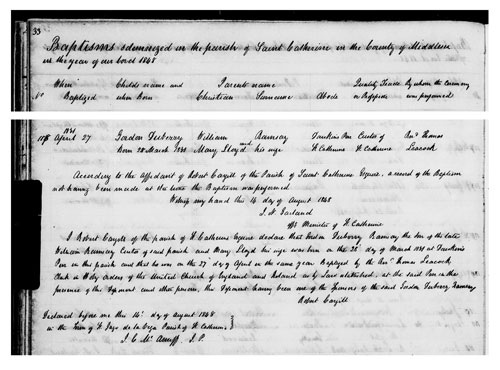 33
Baptisms solemnized in the parish of Saint Catherine in the County of Middlesex
in the year of our Lord 1848
When Child's name and Parents name Quality Trade By whom the Ceremony
No Baptized when Born Christian Surname Abode or Profession was performed
1841
April 27 Gordon Duberry William Ramsay Custos of Revd Thomas
Born 28 March 1841 Mary Lloyd and his wife St Catherine St Catherine Leacock
According to the Affidavit of Robert Cargill of the Parish of Saint Catherine Esquire, a record of the Baptism
not having been made at the time the Baptism was performed
Witness my hand this 14 day of August 1848
Minister of St Catherine
I Robert Cargill of the parish of St Catherine Esquire declare that Gordon Duberry Ramsay the son of the late
William Ramsay Custos of said parish and Mary Lloyd his wife was born on the 28 day of March 1841 at
Pen in this parish and that he was on the 27 day of April in the same year Baptized by the Revd Thomas Leacock
Clerk in Holy orders of the United Church of England and Ireland as by Law established, at the said Pen in the
presence of the Deponent and other persons, this Deponent having been one of the Sponsors of the said Gordon Duberry Ramsay
Robert Cargill
Declared before me this 14th day of August 1848
in the town of St Jago de la Vega Parish of St Catherine
J. P.